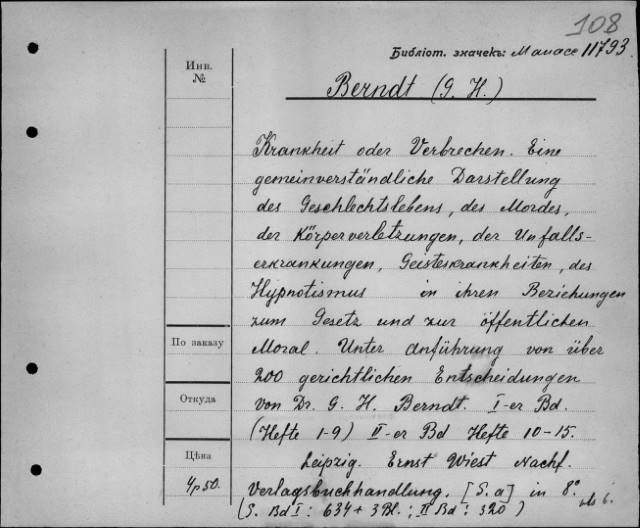 108
Библіот. значекъ: Manace 11793
Инв.
№
Berndt (G. H.)
Krankheit oder Verbrechen. Eine
gemeinverständliche Darstellung
des Geschlechtslebens, des Mordes,
der Körperverletzungen, der Unfalls-
erkrankungen, Geisteskrankheiten, des
Hypnotismus in ihren Beziehungen
zum Gesetz und zur öffentlichen
Moral. Unter Anführung von über
200 gerichtlichen Entscheidungen
von Dr. G. H. Berndt. I-er Bd.
(Hefte 1-9) II-er Bd Hefte 10-15.
Leipzig. Ernst Wiest Nachf.
Verlagsbuchhandlung. [S. a] in 8°.
(S. Bd I: 634 + 3 Bl.; II Bd: 320)
По заказу
Откуда
Цѣна
4р50.